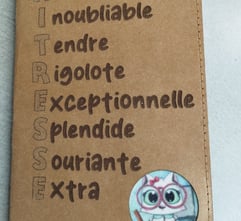 Inoubliable
Tendre
Rigolote
Exceptionnelle
Splendide
Souriante
Extra